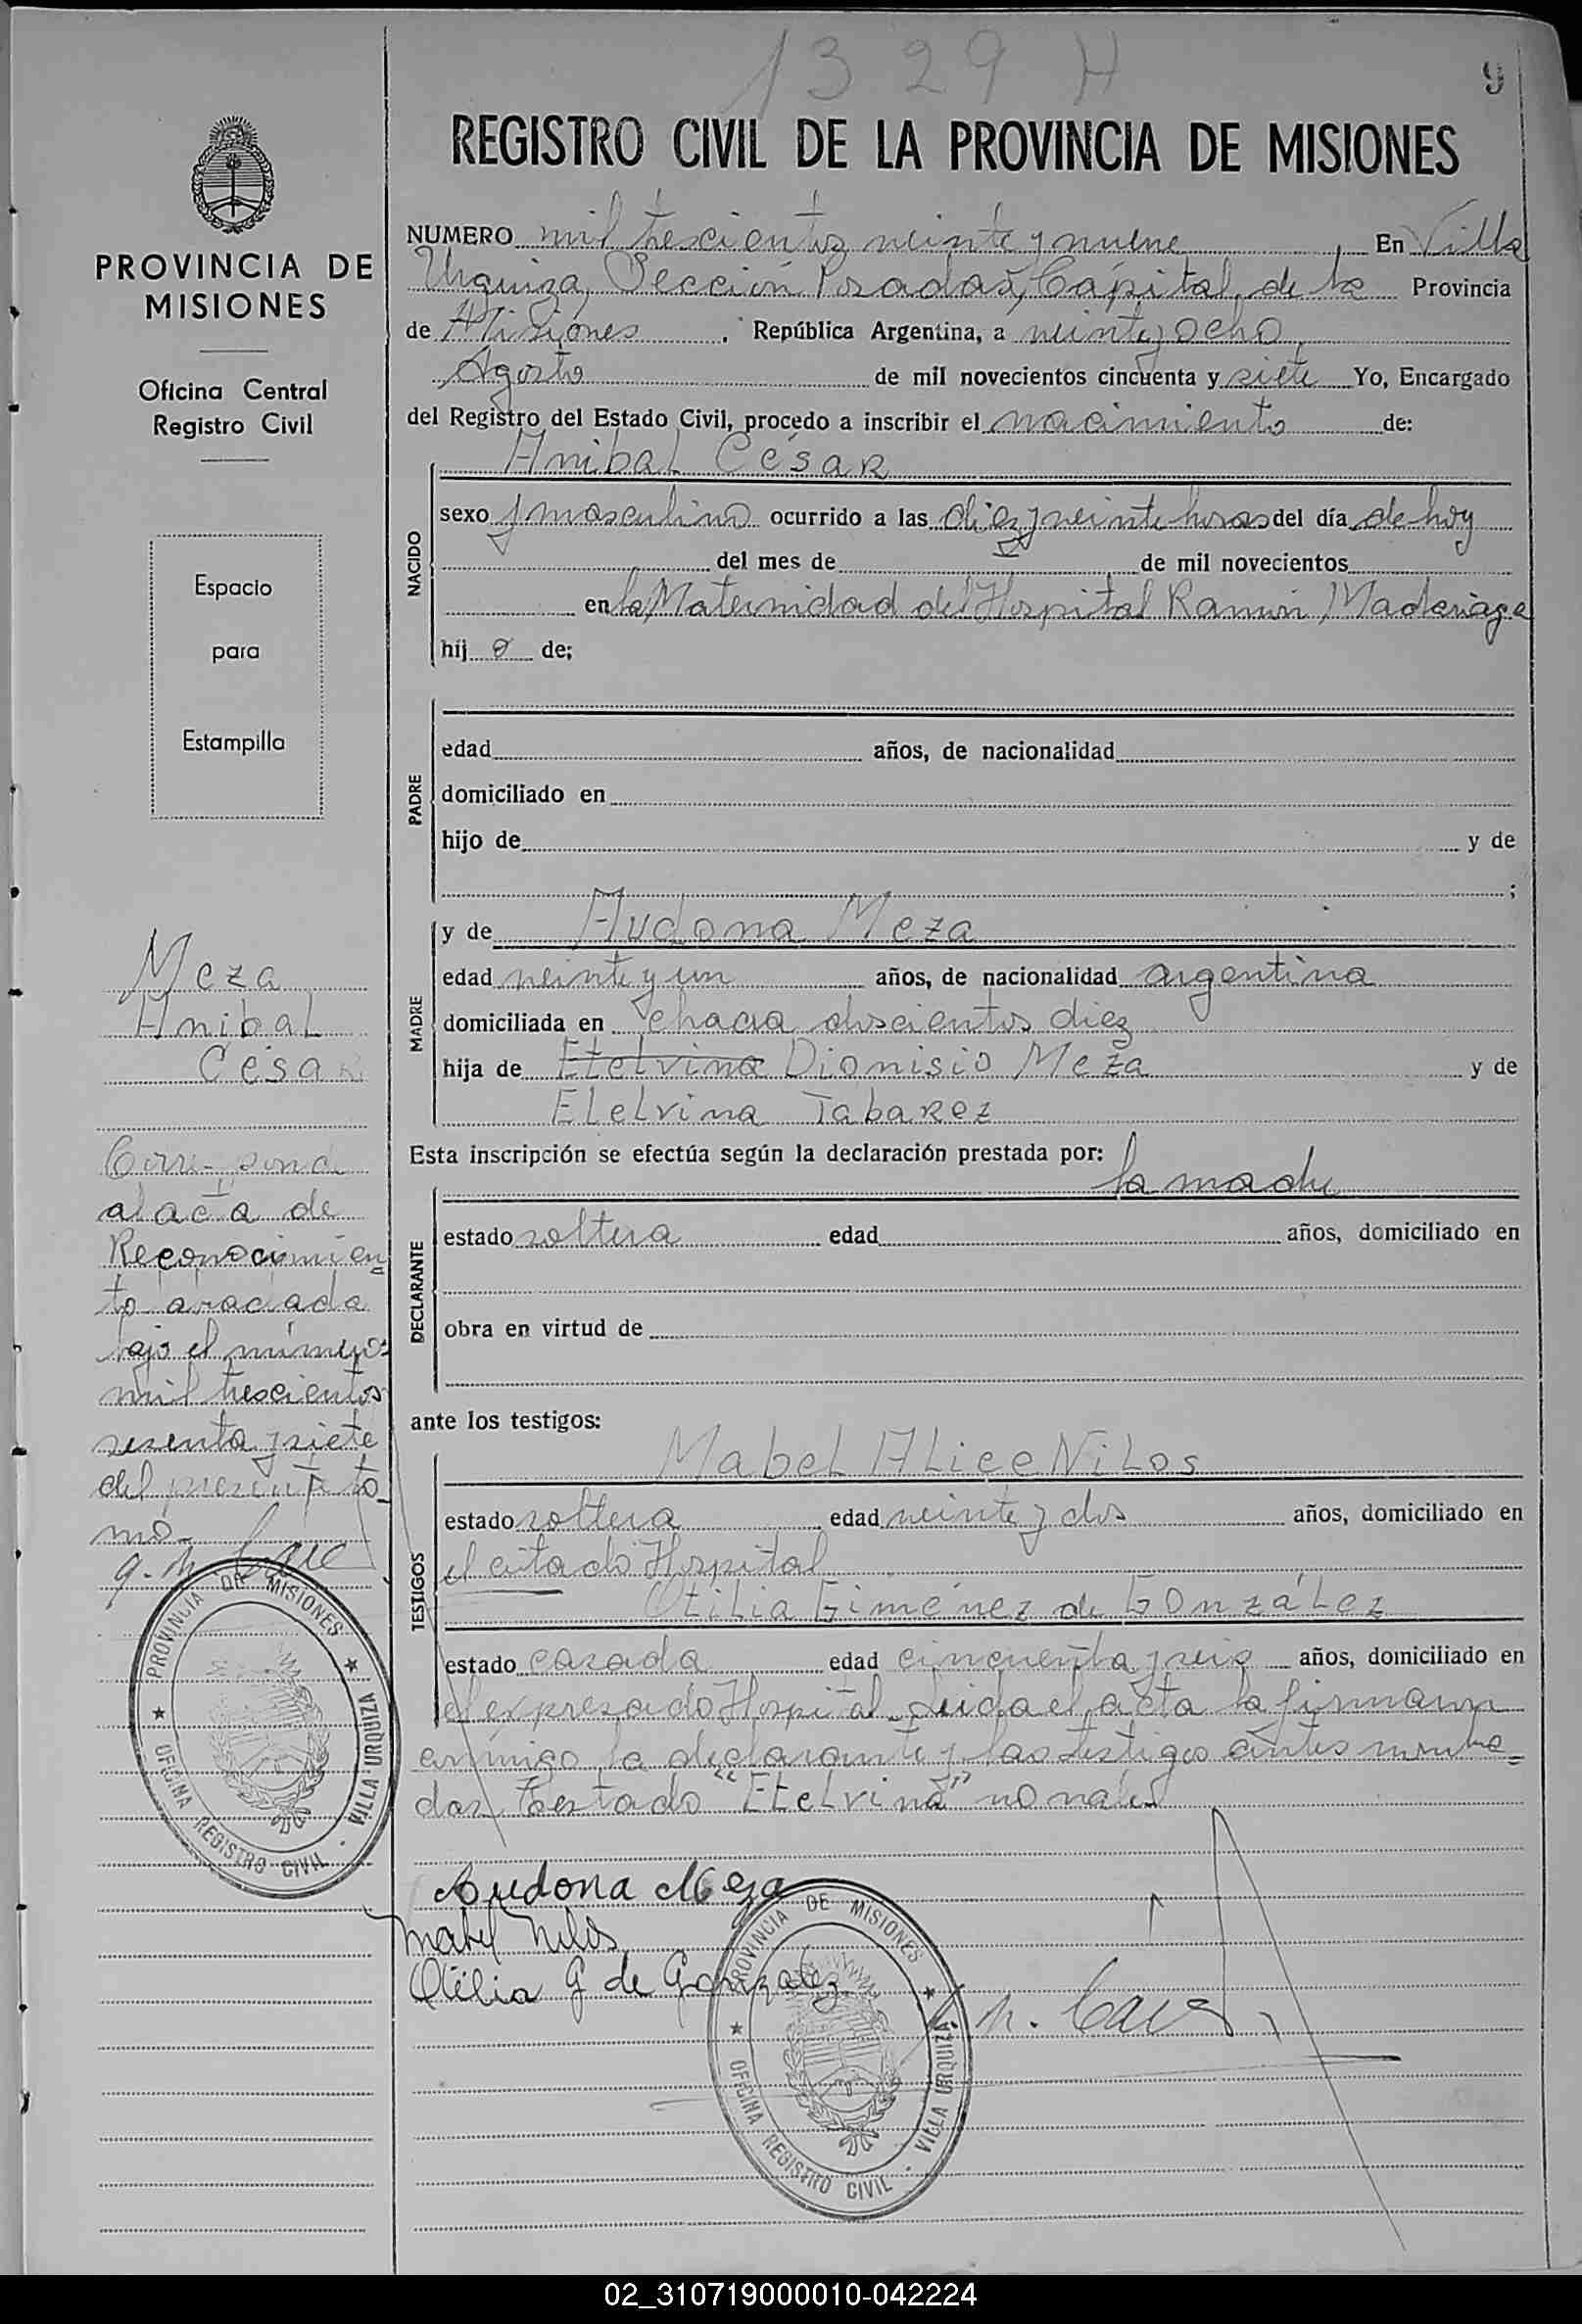 1329 H
9
REGISTRO CIVIL DE LA PROVINCIA DE MISIONES
PROVINCIA DE
MISIONES
Oficina Central
Registro Civil
Espacio
para
Estampilla
NUMERO mil trescientos veinte y nueve, En Villa
Urquiza, Sección Posadas, Capital de la Provincia
de Misiones. República Argentina, a veinte y ocho
Agosto de mil novecientos cincuenta y siete Yo, Encargado
del Registro del Estado Civil, procedo a inscribir el nacimiento de:
NACIDO
Anibal César
sexo masculino ocurrido a las diez y veinte horas del día de hoy
del mes de de mil novecientos
en la Maternidad del Hospital Ramón Madariaga
hij o de;
PADRE
edad años, de nacionalidad
domiciliado en
hijo de y de
;
MADRE
y de Audona Meza
edad veinte y un años, de nacionalidad argentina
domiciliada en chacra doscientos diez
hija de Etelvina Dionisio Meza y de
Etelvina Tabarez
Esta inscripción se efectúa según la declaración prestada por:
DECLARANTE
la madre
estado soltera edad años, domiciliado en
obra en virtud de
ante los testigos:
TESTIGOS
Mabel Alice Nilos
estado soltera edad veinte y dos años, domiciliado en
el citado Hospital
Otilia Giménez de González
estado casada edad cincuenta y seis años, domiciliado en
el expresado Hospital. Leida el acta la firmaron
conmigo la declarante y las testigos antes nombra=
das Testado "Etelvina" no vale
Audona Meza
Mabel Nilos
Otilia G de Gonzalez
PROVINCIA DE MISIONES
OFICINA REGISTRO CIVIL · VILLA URQUIZA
Meza
Anibal
César
Corresponde
al acta de
Reconocimien
to
bajo el número
mil trescientos
sesenta y siete
del presente to
mo-
PROVINCIA DE MISIONES
OFICINA REGISTRO CIVIL · VILLA URQUIZA
02_310719000010-042224